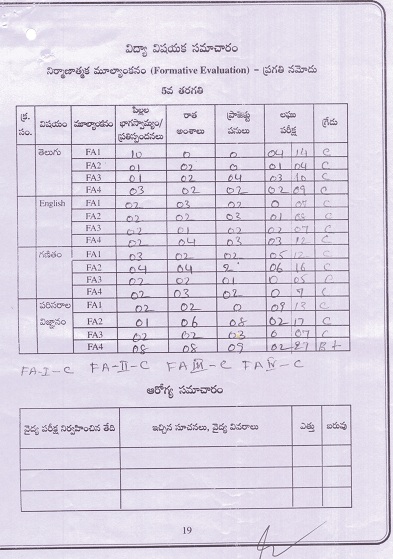 విద్యా విషయక సమాచారం
నిర్మాణాత్మక మూల్యాంకనం (Formative Evaluation) – ప్రగతి నమోదు
5వ తరగతి
క్ర. సం. విషయం మూల్యాంకనం పిల్లల భాగస్వామ్యం/ ప్రతిస్పందనలు రాత అంశాలు ప్రాజెక్టు పనులు లఘు పరీక్ష గ్రేడు
తెలుగు FA1 10 0 0 04 14 C
FA2 01 02 0 01 04 C
FA3 01 02 04 03 10 C
FA4 03 02 02 02 09 C
English FA1 02 03 02 0 C
FA2 02 02 03 01 08 C
FA3 02 01 02 02 07 C
FA4 02 04 03 03 12 C
గణితం FA1 03 02 02 05 12 C
FA2 04 04 2 06 16 C
FA3 02 02 01 0 05 C
FA4 02 03 02 0 C
పరిసరాల విజ్ఞానం FA1 02 02 0 C
FA2 01 06 08 02 17 C
FA3 02 02 03 0 07 C
FA4 08 08 09 02 27 B+
FA-I-C FA-II-C FA III-C FA IV-C
ఆరోగ్య సమాచారం
వైద్య పరీక్ష నిర్వహించిన తేది ఇచ్చిన సూచనలు, వైద్య వివరాలు ఎత్తు బరువు
19